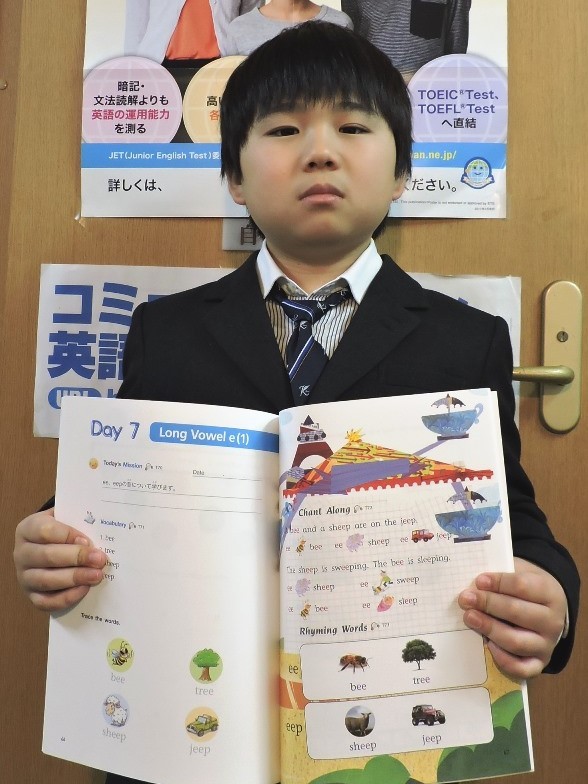 暗記・
文法読解よりも
英語の運用能力
を測る
TOEIC® Test、
TOEFL® Test
へ直結
JET(Junior English Test)
詳しくは、
ください。
英語
Day 7
Long Vowel e(1)
Today's Mission
Date
ee, eepの音について学びます。
Vocabulary
bee
tree
sheep
jeep
Trace the words.
bee
tree
sheep
jeep
Chant Along
bee and a sheep are on the jeep.
ee bee ee sheep ee jeep
The sheep is sweeping. The bee is sleeping.
ee sheep ee sweep
ee bee ee sleep
Rhyming Words
ee
bee
tree
eep
sheep
jeep